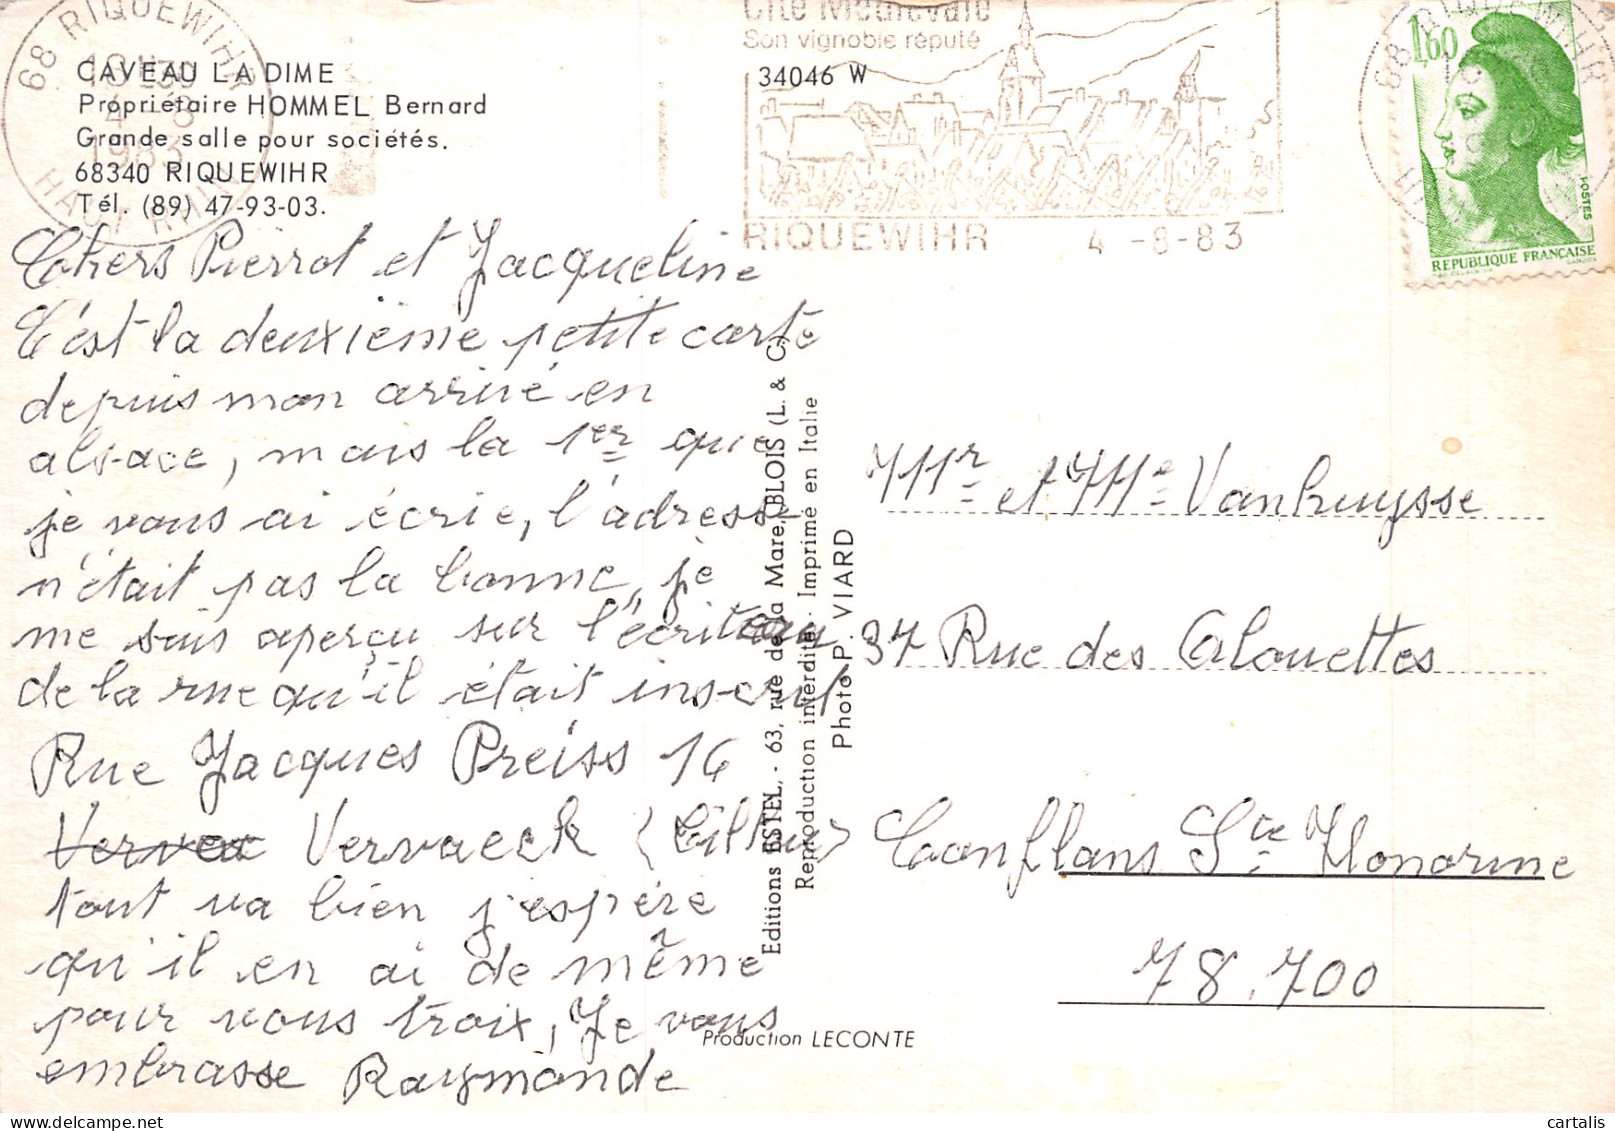 68 RIQUEWIHR
HAUT RHIN
4 - 8
1983
CAVEAU LA DIME
Propriétaire HOMMEL Bernard
Grande salle pour sociétés.
68340 RIQUEWIHR
Tél. (89) 47-93-03.
Cité Médiévale
Son vignoble réputé
34046 W
RIQUEWIHR 4 -8-83
68 RIQUEWIHR
1,60
POSTES
REPUBLIQUE FRANÇAISE
Chers Pierrot et Jacqueline
C'est la deuxième petite carte
depuis mon arrivé en
alsace, mais la 1er que
je vous ai écrie, l'adresse
n'était pas la bonne, je
me suis aperçu sur l'écriteau
de la rue qu'il était inscrit
Rue Jacques Preiss 16
Vervaeck
tout va bien j'espére
qu'il en ai de même
pour vous trois, Je vous
embrasse Raymonde
Editions ESTEL, - 63, rue de la Mare, BLOIS (L. & C.)
Reproduction interdite - Imprimé en Italie
Photo P. VIARD
Production LECONTE
Mr et Mme Vanhuysse
37 Rue des Alouettes
Conflans Ste Honorine
78.700
cartalis